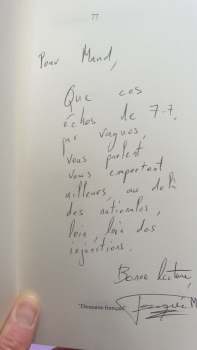 77
Pour Maud,
Que ces
échos de 7.7.
par vagues,
vous parlent
vous emportent
ailleurs, au delà
des nationales,
loin, loin des
injonctions.
Bonne lecture,
"Domaine français"